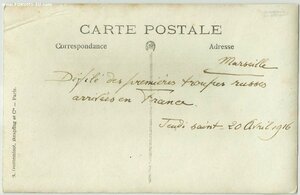 CARTE POSTALE
Correspondance
Adresse
Marseille
Défilé des premières troupes russes
arrivées en France
Jeudi saint 20 Avril 1916